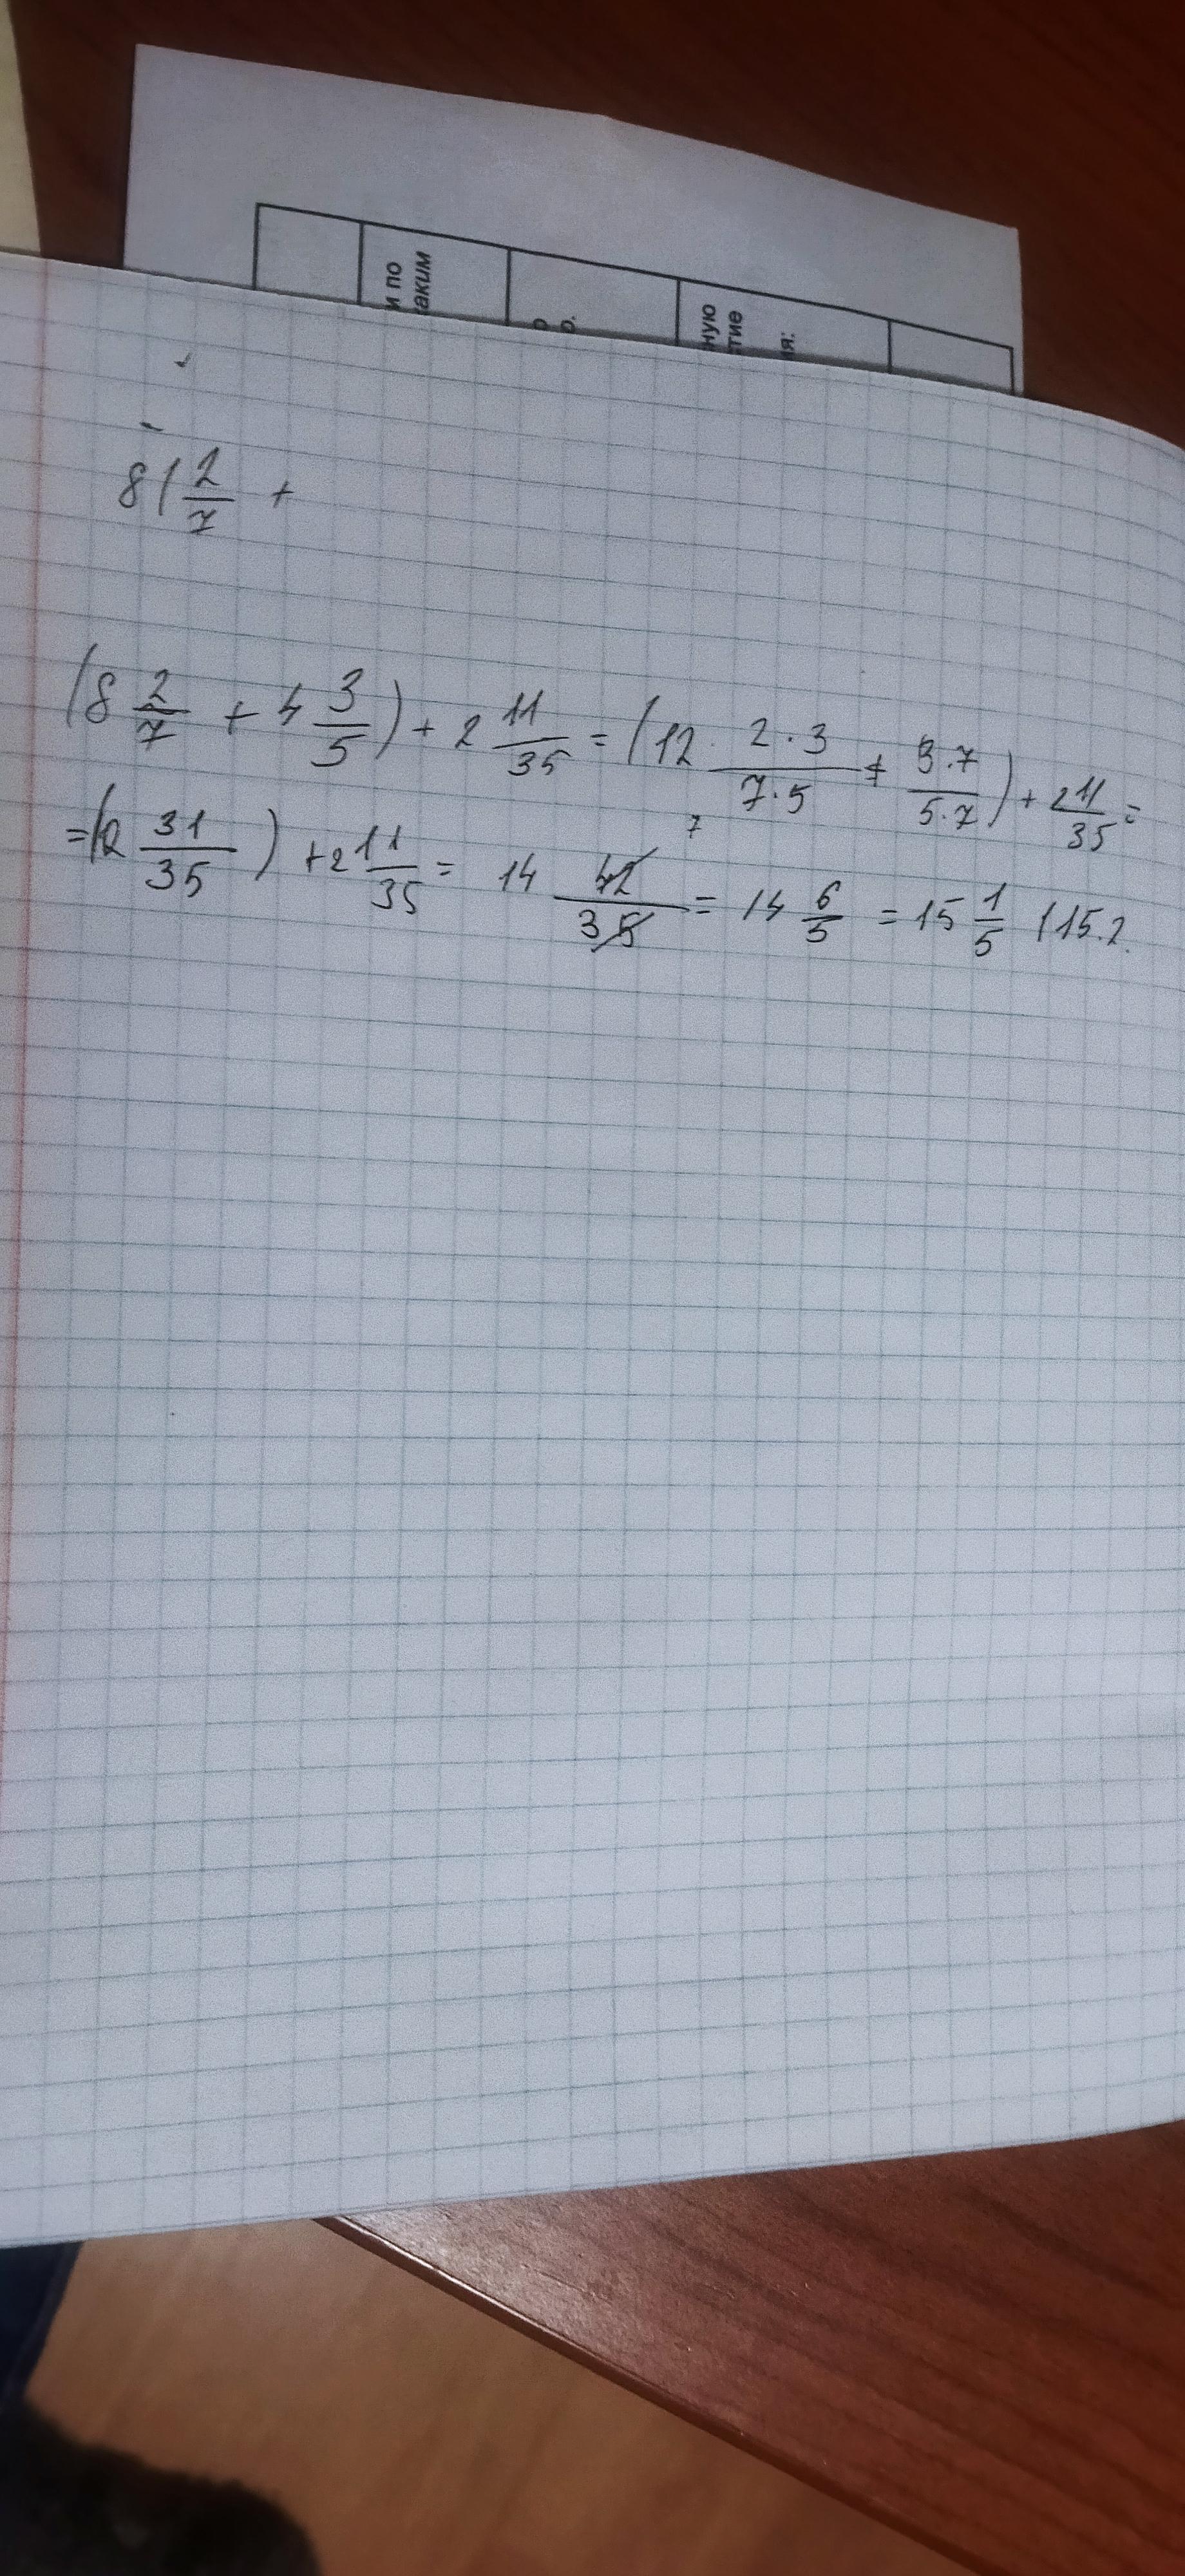 и по
аким
о
о.
ную
тие
ия:
8(2/7 +
(8 2/7 + 4 3/5) + 2 11/35 = (12 2·3/7·5 + 3·7/5·7) + 2 11/35 =
=(12 31/35) + 2 11/35 = 14 42/35 7 = 14 6/5 = 15 1/5 (15.2.